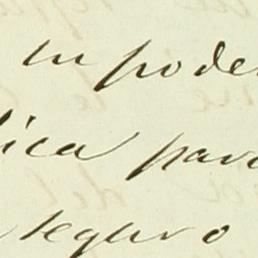 su poder
lica para
seguro